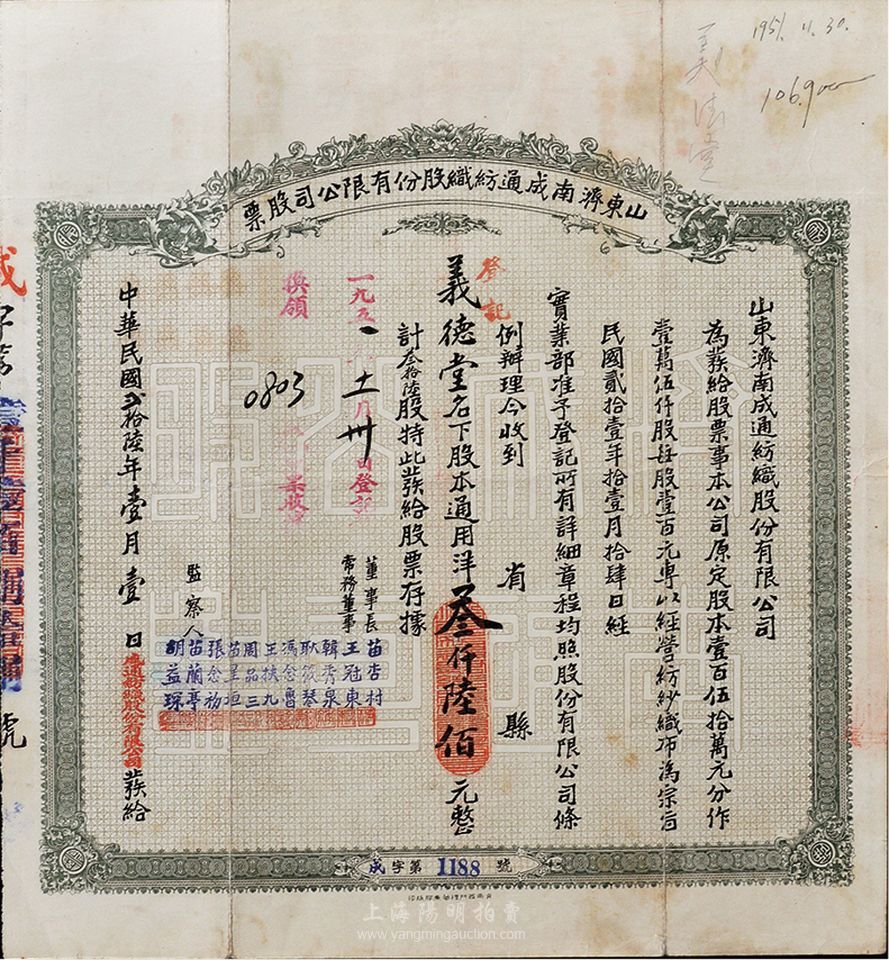 1951.11.30.
106.900
山東濟南成通紡織股份有限公司股票
山東濟南成通紡織股份有限公司
為發給股票事本公司原定股本壹百伍拾萬元分作
壹萬伍仟股每股壹百元專以經營紡紗織布為宗旨
民國貳拾壹年拾壹月拾肆日經
實業部准予登記所有詳細章程均照股份有限公司條
例辦理今收到 省 縣
登記
義德堂名下股本通用洋叁仟陸佰元整
計叁拾陸股特此發給股票存據
一九五一年十一月卅日登記
換領
0803
董事長 苗杏村
常務董事 王冠東
韓秀泉
耿筱琴
馮念魯
王扶九
周品三
苗星垣
張念礽
監察人 苗蘭亭
胡益琛
中華民國貳拾陸年壹月壹日成通紡織股份有限公司發給
成字第1188號
上海陽明拍賣
www.yangmingauction.com